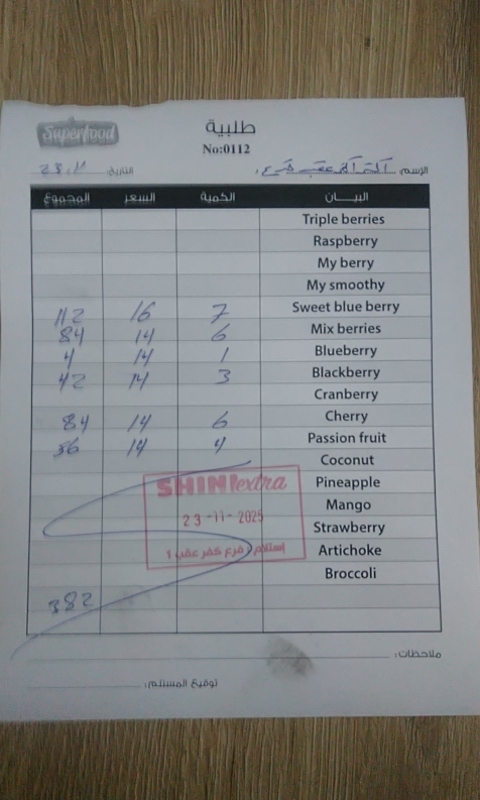 Superfood
طلبية
No:0112
الإسم: التاريخ: 23.11
البيان الكمية السعر المجموع
Triple berries
Raspberry
My berry
My smoothy
Sweet blue berry 7 16 112
Mix berries 6 14 84
Blueberry 1 14 4
Blackberry 3 14 42
Cranberry
Cherry 6 14 84
Passion fruit 4 14 56
Coconut
Pineapple
SHINI extra
Mango
23-11-2025
Strawberry
Artichoke
إستلام: فرع كفر عقب 1
Broccoli
382
ملاحظات:
توقيع المستلم: